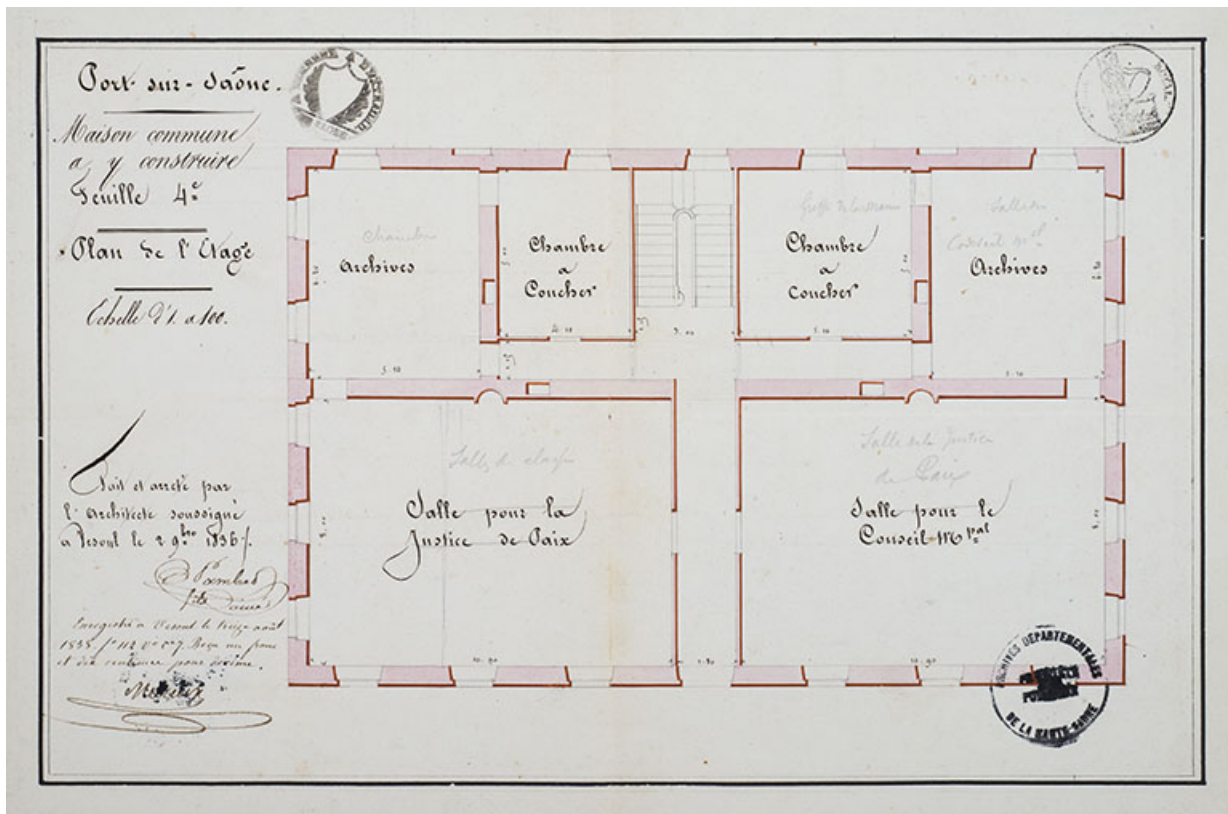 Port-sur-Saône.
Maison commune
a y construire
Feuille 4e
Plan de l'Etage
Echelle d'1. a 100.
Fait et arrêté par
l'Architecte soussigné
a Vesoul le 2 9bre 1836
fils
Enregistré a Vesoul le treize août
1838 Reçu un franc
et dix centimes pour décime.
Chambre
Archives
Chambre
a
Coucher
Chambre
a
coucher
Salle du
Conseil Mal
Archives
5.50
4.00
3.00
5.00
Salle de classe
Salle pour la
Justice de Paix
Salle de la Justice
de Paix
Salle pour le
Conseil Mpal
10.90
2.80
10.90
ROYAL
ARCHIVES DEPARTEMENTALES
DE LA HAUTE-SAONE